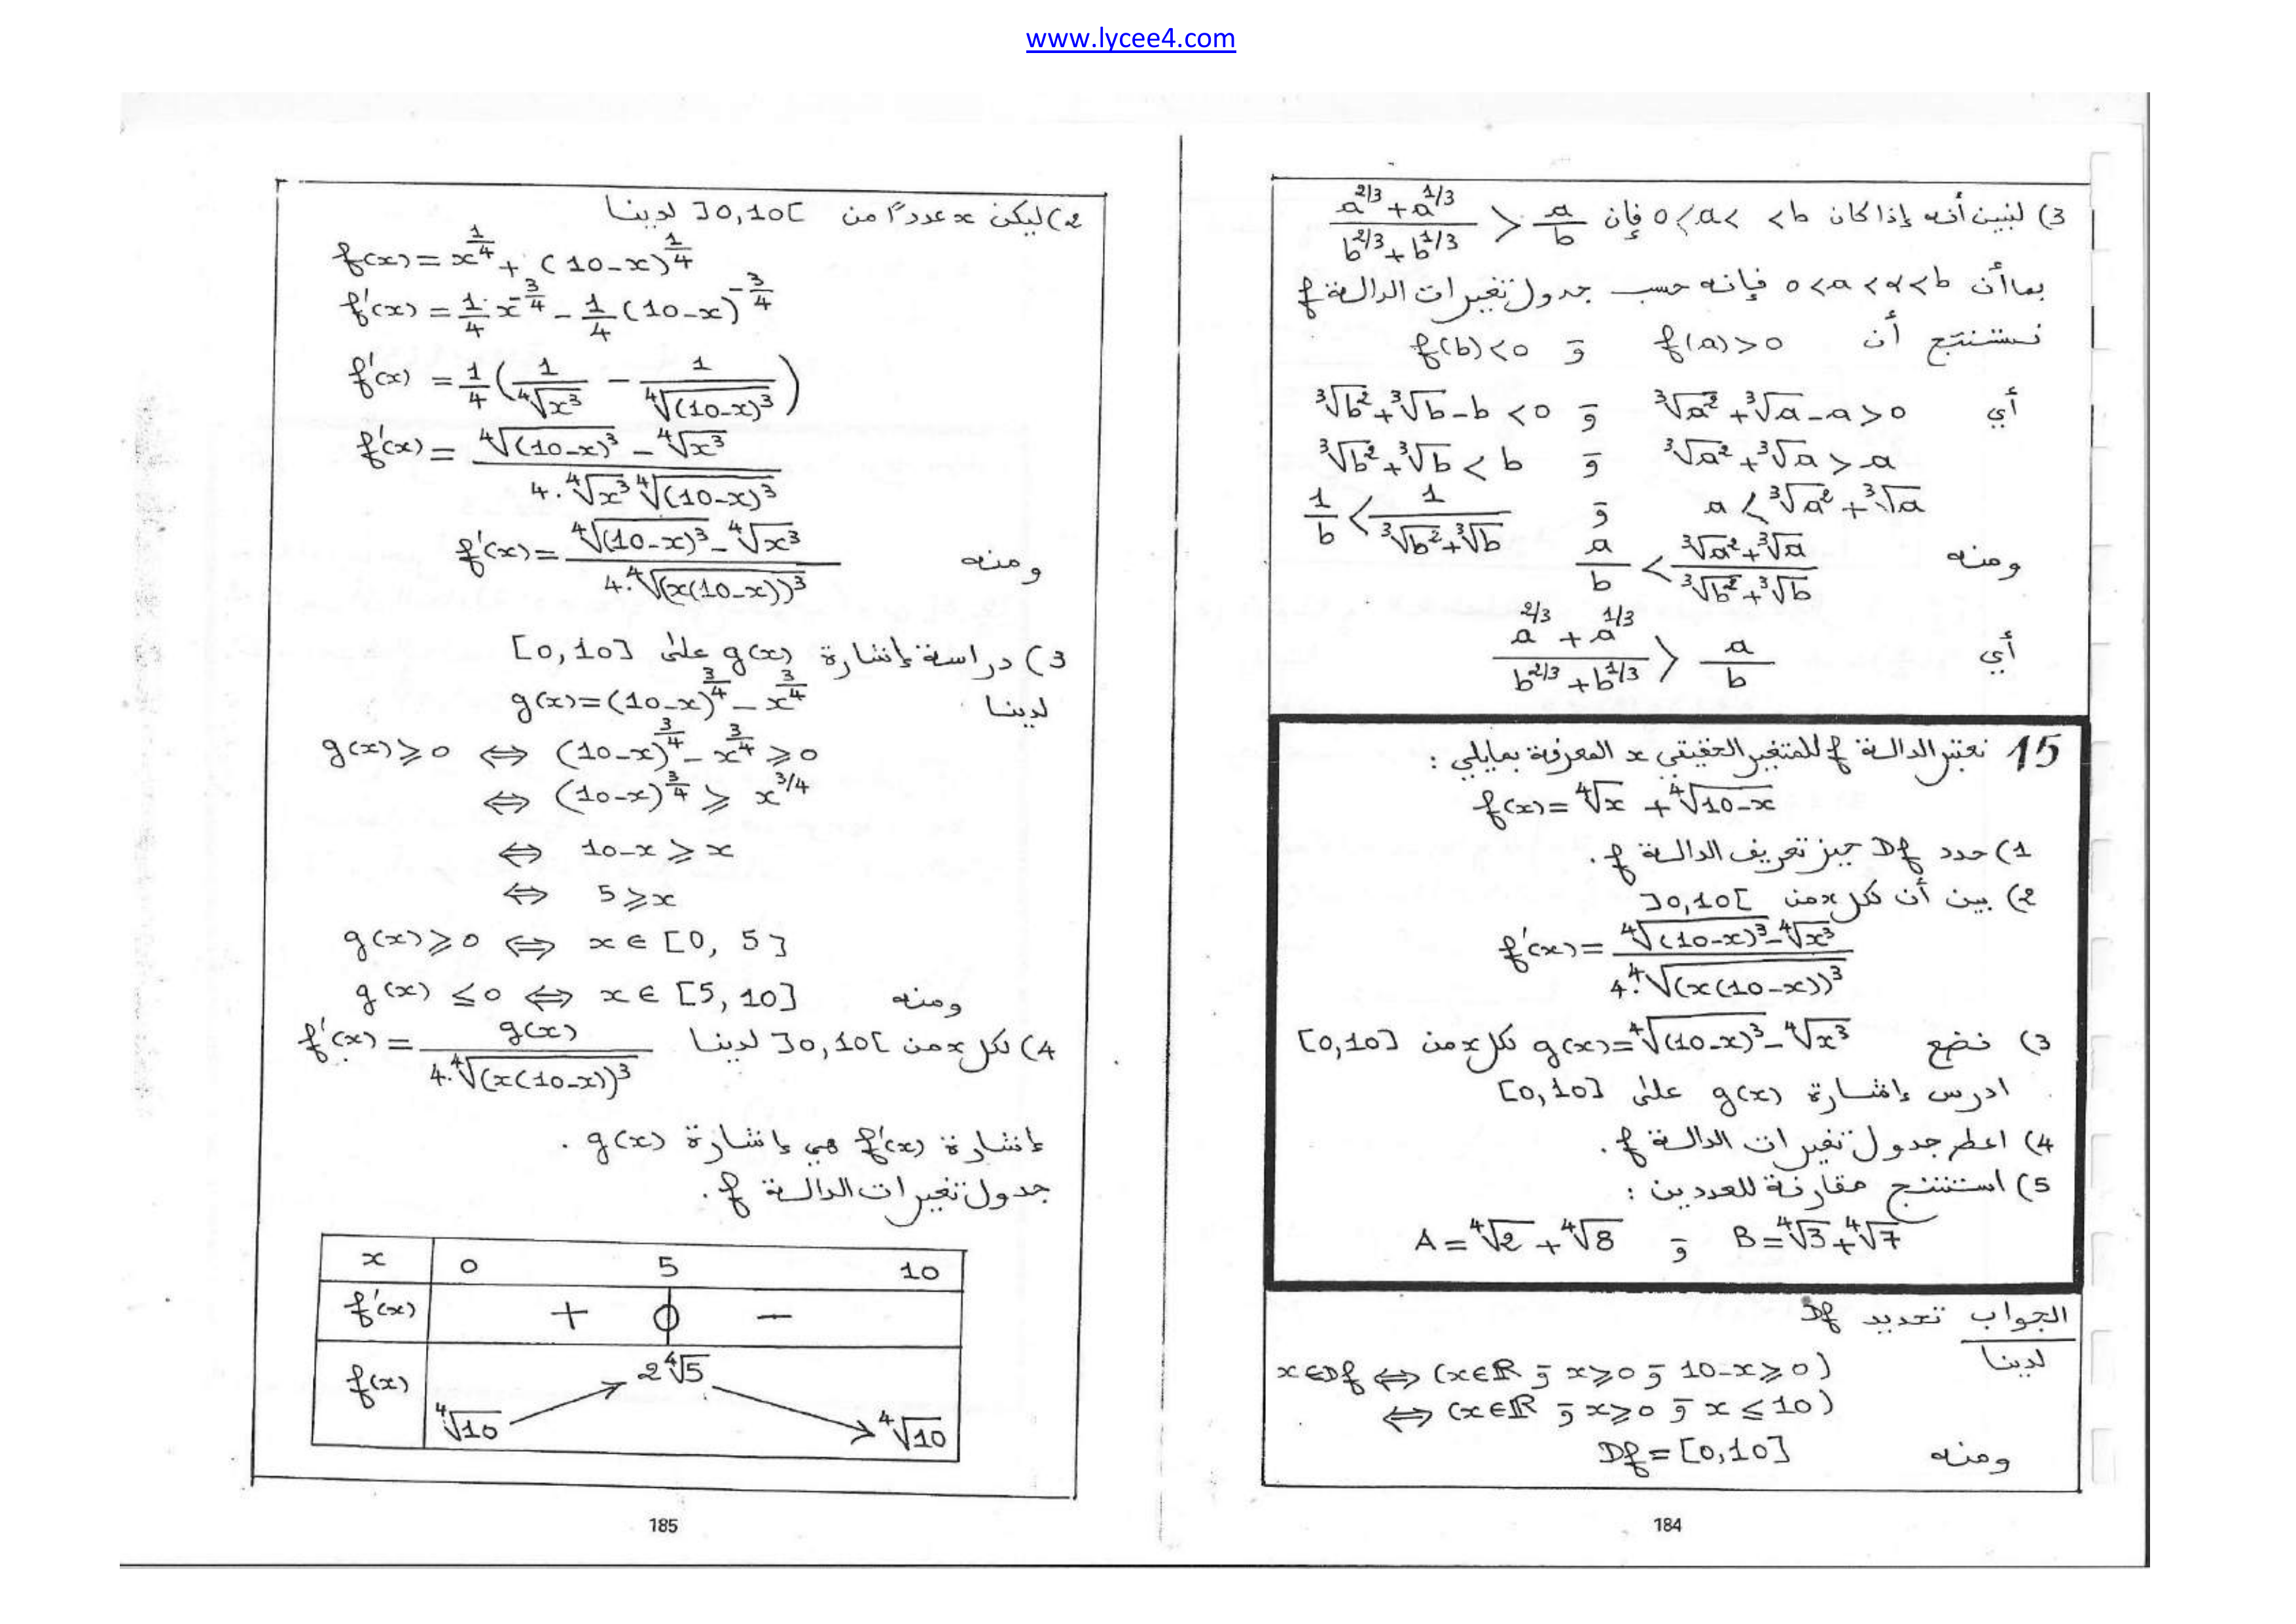 www.lycee4.com
3) لنبين أنه إذا كان 0<a< <b فإن (a^{2/3}+a^{1/3})/(b^{2/3}+b^{1/3}) > a/b
بما أن 0<a<α<b فإنه حسب جدول تغيرات الدالة f
نستنتج أن f(a)>0 و f(b)<0
أي ∛a²+∛a-a>0 و ∛b²+∛b-b<0
∛a²+∛a>a و ∛b²+∛b<b
a<∛a²+∛a و 1/b<1/(∛b²+∛b)
ومنه a/b<(∛a²+∛a)/(∛b²+∛b)
أي (a^{2/3}+a^{1/3})/(b^{2/3}+b^{1/3}) > a/b
15 نعتبر الدالة f للمتغير الحقيقي x المعرفة بمايلي :
f(x)=∜x+∜(10-x)
1) حدد Df حيز تعريف الدالة f.
2) بين أن لكل x من ]0,10[
f'(x)=(∜(10-x)³-∜x³)/(4.∜(x(10-x))³)
3) نضع g(x)=∜(10-x)³-∜x³ لكل x من [0,10]
ادرس إشارة g(x) على [0,10]
4) اعط جدول تغيرات الدالة f.
5) استنتج مقارنة للعددين :
A=∜2+∜8 و B=∜3+∜7
الجواب تحديد Df
لدينا
x∈Df ⟺ (x∈ℝ و x⩾0 و 10-x⩾0)
⟺ (x∈ℝ و x⩾0 و x≤10)
ومنه Df=[0,10]
184
2) ليكن x عددًا من ]0,10[ لدينا
f(x)=x^{1/4}+(10-x)^{1/4}
f'(x)=1/4.x^{-3/4}-1/4(10-x)^{-3/4}
f'(x)=1/4(1/∜x³-1/∜(10-x)³)
f'(x)=(∜(10-x)³-∜x³)/(4.∜x³∜(10-x)³)
ومنه f'(x)=(∜(10-x)³-∜x³)/(4.∜(x(10-x))³)
3) دراسة إشارة g(x) على [0,10]
لدينا g(x)=(10-x)^{3/4}-x^{3/4}
g(x)⩾0 ⟺ (10-x)^{3/4}-x^{3/4}⩾0
⟺ (10-x)^{3/4}⩾x^{3/4}
⟺ 10-x⩾x
⟺ 5⩾x
g(x)⩾0 ⟺ x∈[0, 5]
ومنه g(x)≤0 ⟺ x∈[5, 10]
4) لكل x من ]0,10[ لدينا f'(x)=g(x)/(4.∜(x(10-x))³)
إشارة f'(x) هي إشارة g(x).
جدول تغيرات الدالة f.
x 0 5 10
f'(x) + 0 -
f(x) ∜10 2∜5 ∜10
185